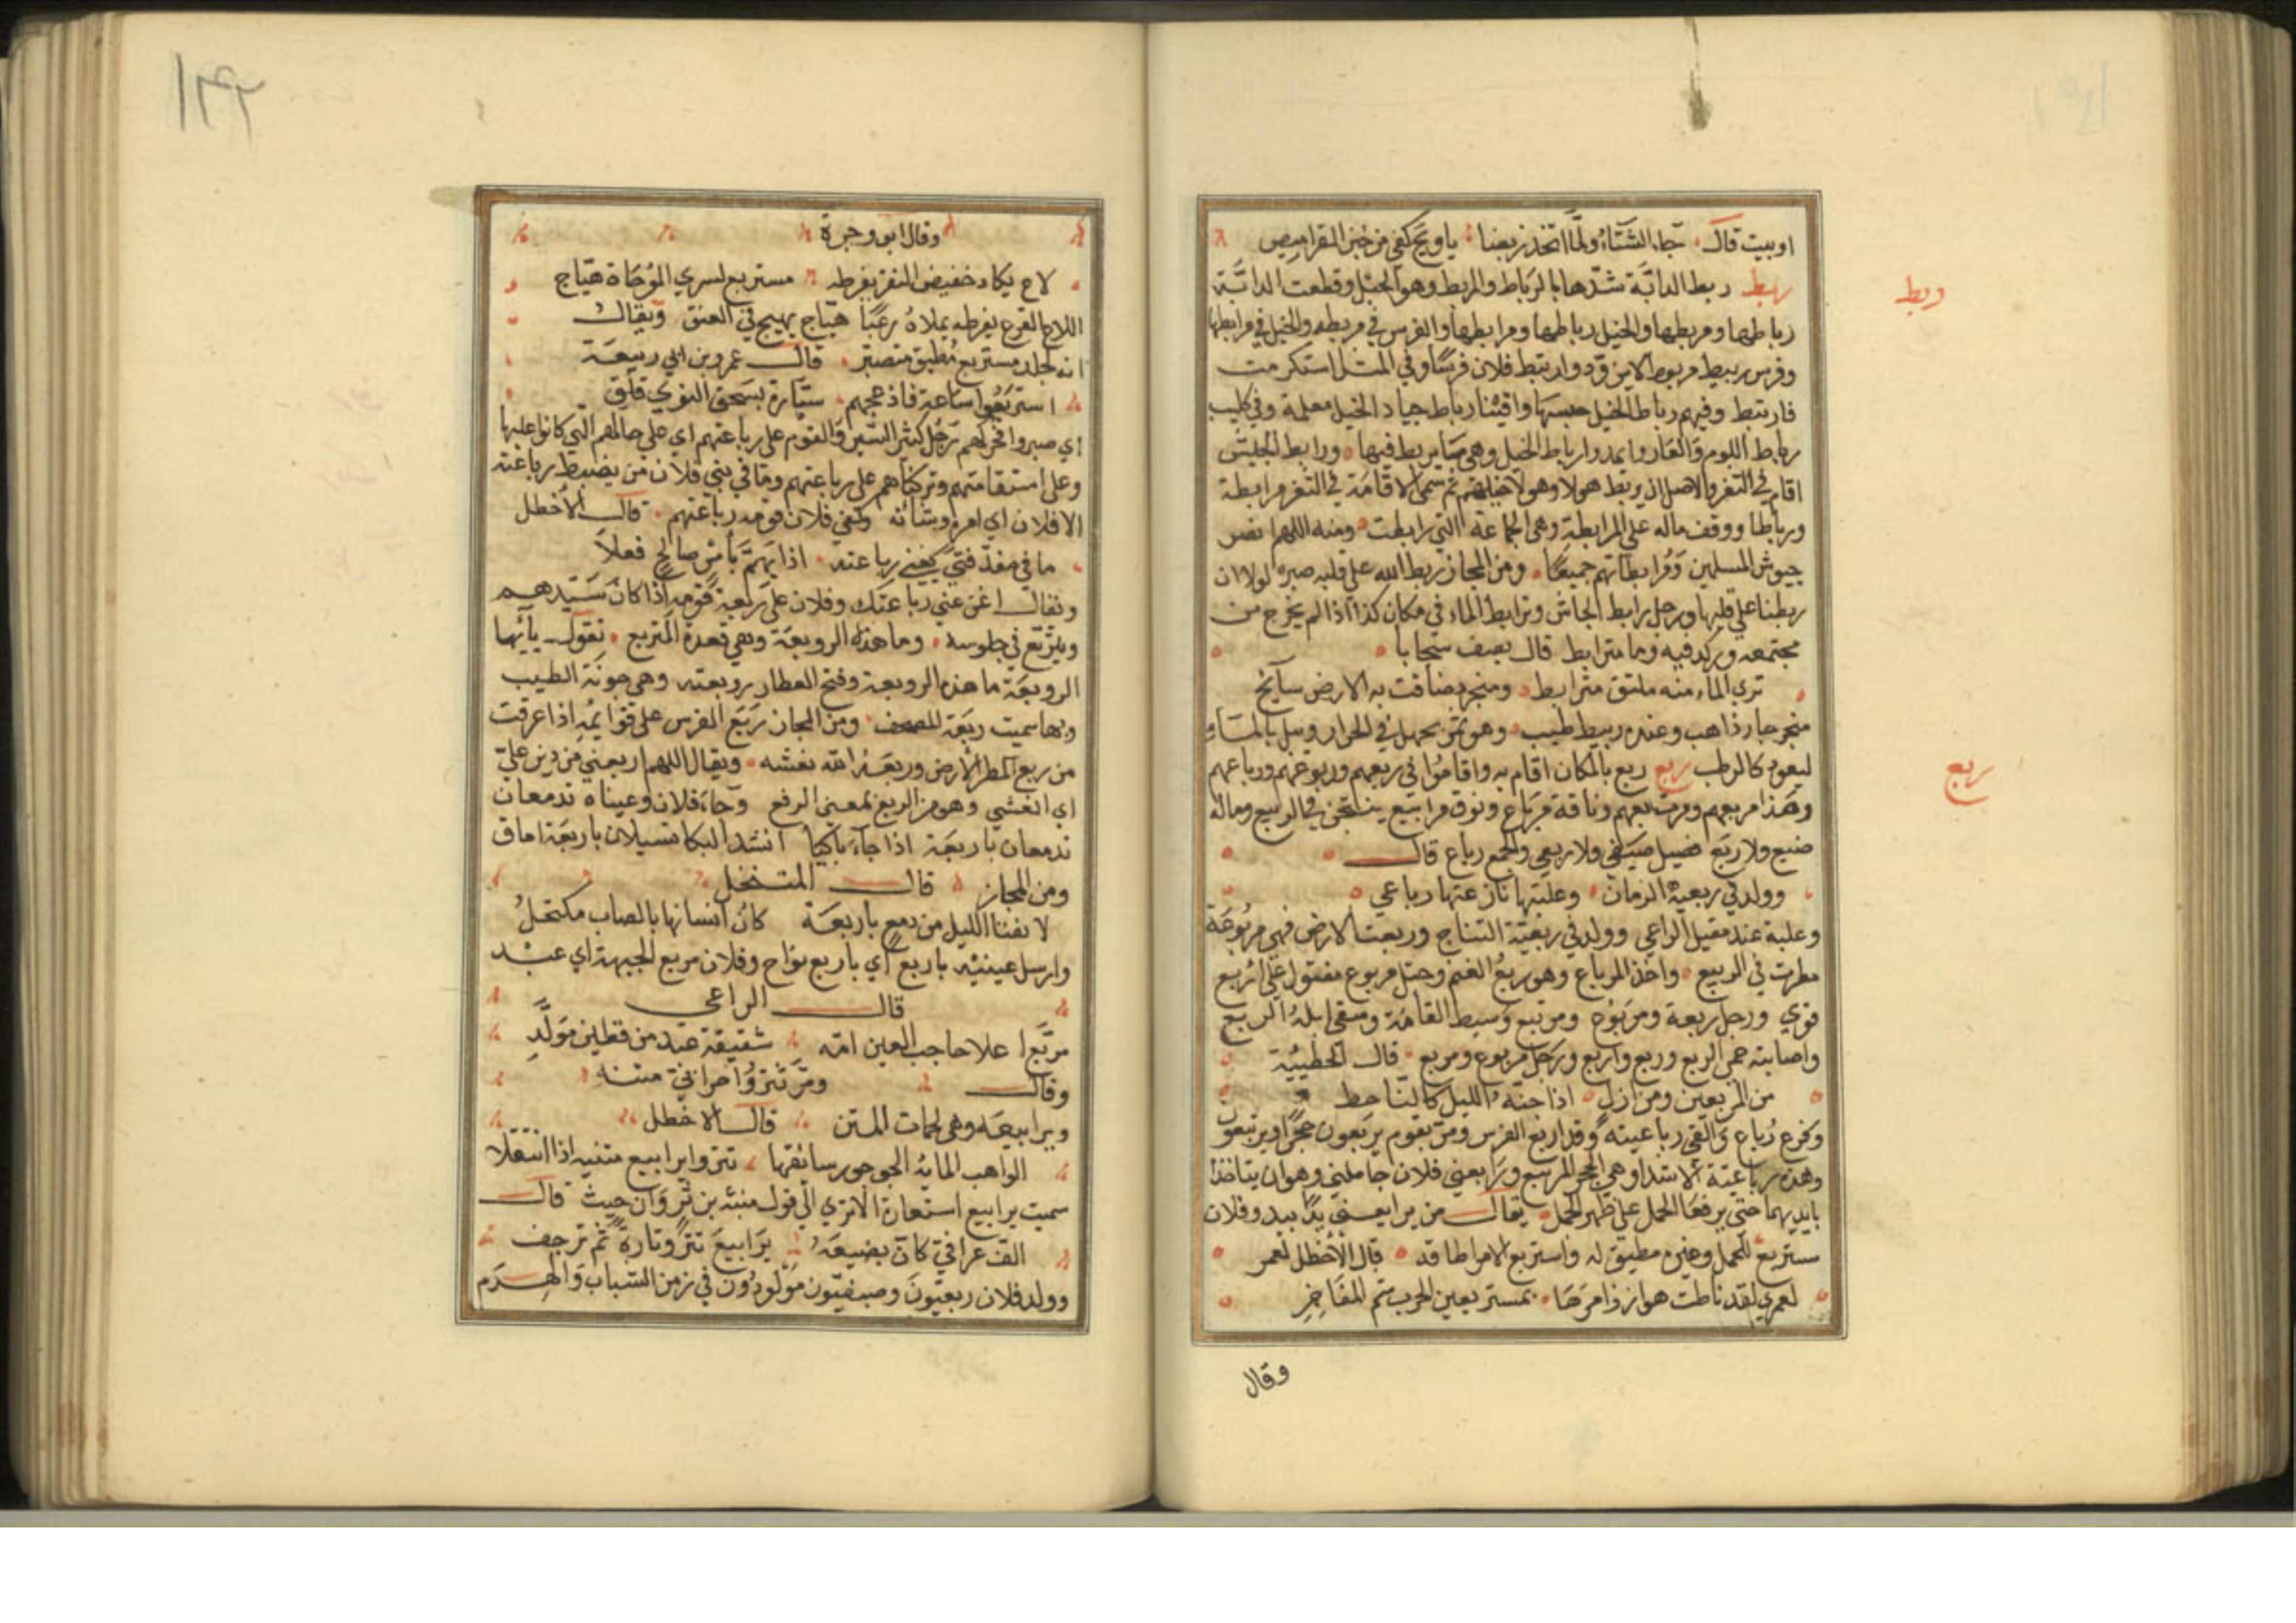 اوبيت قال جاء الشتاء ولما اتخذ ربضا يا ويح كفى من حفر القراميص
ربط
ربط ربط الدابة شدها بالرباط والمربط وهو الحبل وقطعت الدابة
رباطها ومربطها والخيل رباطها ومرابطها والفرس في مربطه والخيل في مرابطها
وفرس ربيط مربوط لاين وّد وارتبط فلان فرسا وفي المثل استكرمت
فارتبط وفيهم رباط الخيل حبسها واقتنا رباط جياد الخيل معلمة وفي كليب
رباط اللوم والعار وايمدوا رباط الخيل وهي مايربط فيها ورابط الجيش
اقام في الثغر والاصل ان يربط هولا وهولا خيلهم ثم سمى الاقامة في الثغر مرابطة
ورباطا ووقف ماله على المرابطة وهي الجماعة التي رابطت ومنه اللهم انصر
جيوش المسلمين ومرابطاتهم جميعا ومن المجاز ربط الله على قلبه صبره لولا ان
ربطنا على قلبها ورجل رابط الجاش وترابط الماء في مكان كذا اذا لم يخرج من
مجتمعه وركد فيه وما مترابط قال يصف سحابا
ترى الماء منه ملتق مترابط ومنجرد ضاقت به الارض سايح
منجر جار ذاهب وعنده ربيط طيب وهو تمر يجعل في الجرار ويبل بالماء
ليعود كالرطب ربع ربع بالمكان اقام به واقاموا في ربعهم وربوعهم ورباعهم
ربع
وهذا مربعهم ومرتبعهم وناقة مرباع ونوق مرابيع ينتجن في الربيع وماله
ضبع ولا ربع فصيل صيفي ولا ربعي والجمع رباع قال
وولد في ربعية الزمان وعلبتها نازعتها رباعي
وعلبة عند مقيل الراعي وولد في ربعية النتاج وربعت الارض فهي مربوعة
مطرت في الربيع واخذ المرباع وهو ربع الغنم وحبل مربوع مفتول على اربع
قوي ورجل ربعة ومربوع ومرتبع وسيط القامة وسقى ابله الربع
واصابته حمى الربع وربع واربع ورجل مربوع ومربع قال الحطيئية
من المربعين ومن ازل اذا جنه الليل كالناحط
وكفرع رباع والقى رباعيته وقد اربع الفرس ومر بقوم يربعون حجرا ويرتبعون
وهذه رباعية الاشداء وهي الحجر المربع ورابعني فلان حاملني وهو ان يتاخذا
بايديهما حتى يرفعا الحمل على ظهر الجمل يقال من يرابعني يدا بيد وفلان
مستربع للحمل وغيره مطيق له واستربع الامر اطاقه قال الاخطل لعمر
لعمري لقد ناطت هوازن امرها بمستربعين الحرب شم المفاخر
وقال
١٤٢
وقال ابو وجزة
لاح يكاد خفيض النقر يفرطه مستربع لسري الموماة هياج
اللاح الفزع يفرطه يملاه رعبا هياج يهيج في العنق ويقال
انه لجلد مستربع مطيق متصبر قال عمرو بن ابي ربيعة
استربعوا ساعة فاذعجهم سيارة يسحق النوى قلق
اي صبروا فحركهم رجل كثير السير والقوم على رباعتهم اي على حالهم التي كانوا عليها
وعلى استقامتهم وتركناهم على رباعتهم وما في بني فلان من يضبط رباعته
الا فلان اي امره وشانه وكفى فلان قومه رباعتهم قال الاخطل
ما في معد فتى يغني رباعته اذا يهم بامر صالح فعلا
ويقال اغن عني رباعتك وفلان على رباعة قومه اذا كان سيدهم
ويتربع في جلوسه وما هذه الروبعة وهي قعدة المتربع تقول ياايها
الروبعة ما هذه الروبعة وفتح العطار روبعته وهي جونة الطيب
وبها سميت ربعة للمصحف ومن المجاز ربع الفرس على قوايمه اذا عرقت
من ربع المطر الارض وربعه الله نعشه ويقال اللهم اربعني من دين علي
اي انعشني وهو من الربع بمعنى الرفع وجاء فلان وعيناه تدمعان
تدمعان باربعة اذا جاء باكيا اشد البكا تسيلان باربعة اماق
ومن المجاز قال المتنخل
لا تفتا الليل من دمع باربعة كان انسانها بالصاب مكتحل
وارسل عينيه باربع اي باربع نواح وفلان مربع الجبهة اي عبد
قال الراعي
مربع اعلا حاجب العين امه شقيقة عبد من قطين مولد
وقال ومر تنزو احرابي متنه
ويرابيعه وهي لحمات المتن قال الاخطل
الواهب الماية الجرجور سائقها تنزو يرابيع متنيه اذا انتقلا
سميت يرابيع استعارة الا ترى الى قول منبه بن ثروان حيث قال
الف عراقي كان بضيعه يرابيع تنزو تارة ثم ترجف
وولد فلان ربعيون وصيفيون مولودون في زمن الشباب والهرم